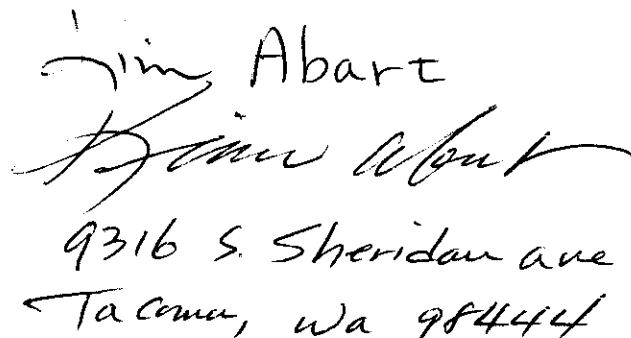 Jim Abart
Kim Abart
9316 S. Sheridan ave
Tacoma, Wa 98444